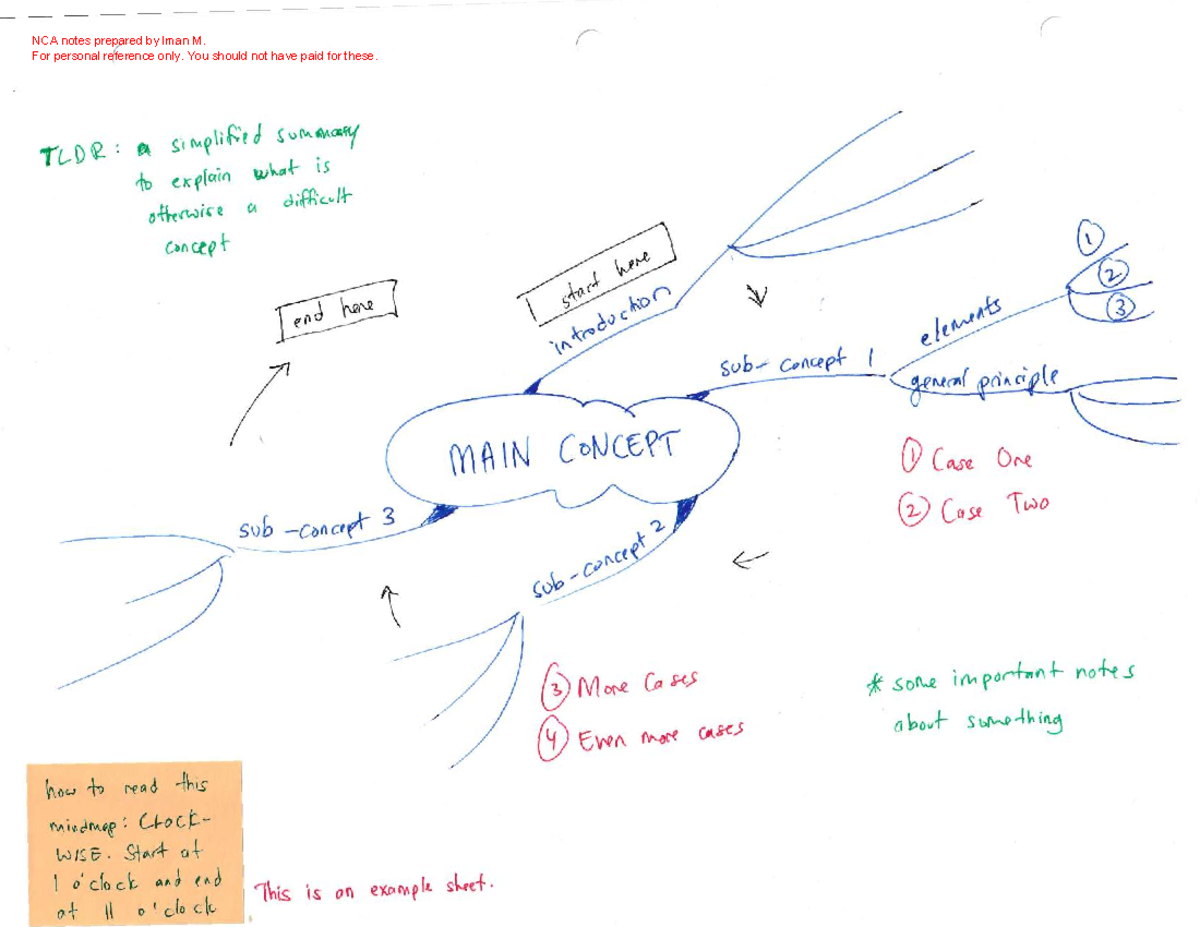 NCA notes prepared by Iman M.
For personal reference only. You should not have paid for these.
TLDR: a simplified summary
to explain what is
otherwise a difficult
concept
start here
end here
introduction
①
②
③
elements
sub-concept 1
general principle
MAIN CONCEPT
① Case One
② Case Two
sub-concept 3
sub-concept 2
③ More Cases
④ Even more cases
* some important notes
about something
how to read this
mindmap: CLOCK-
WISE. Start at
1 o'clock and end
at 11 o'clock
This is an example sheet.